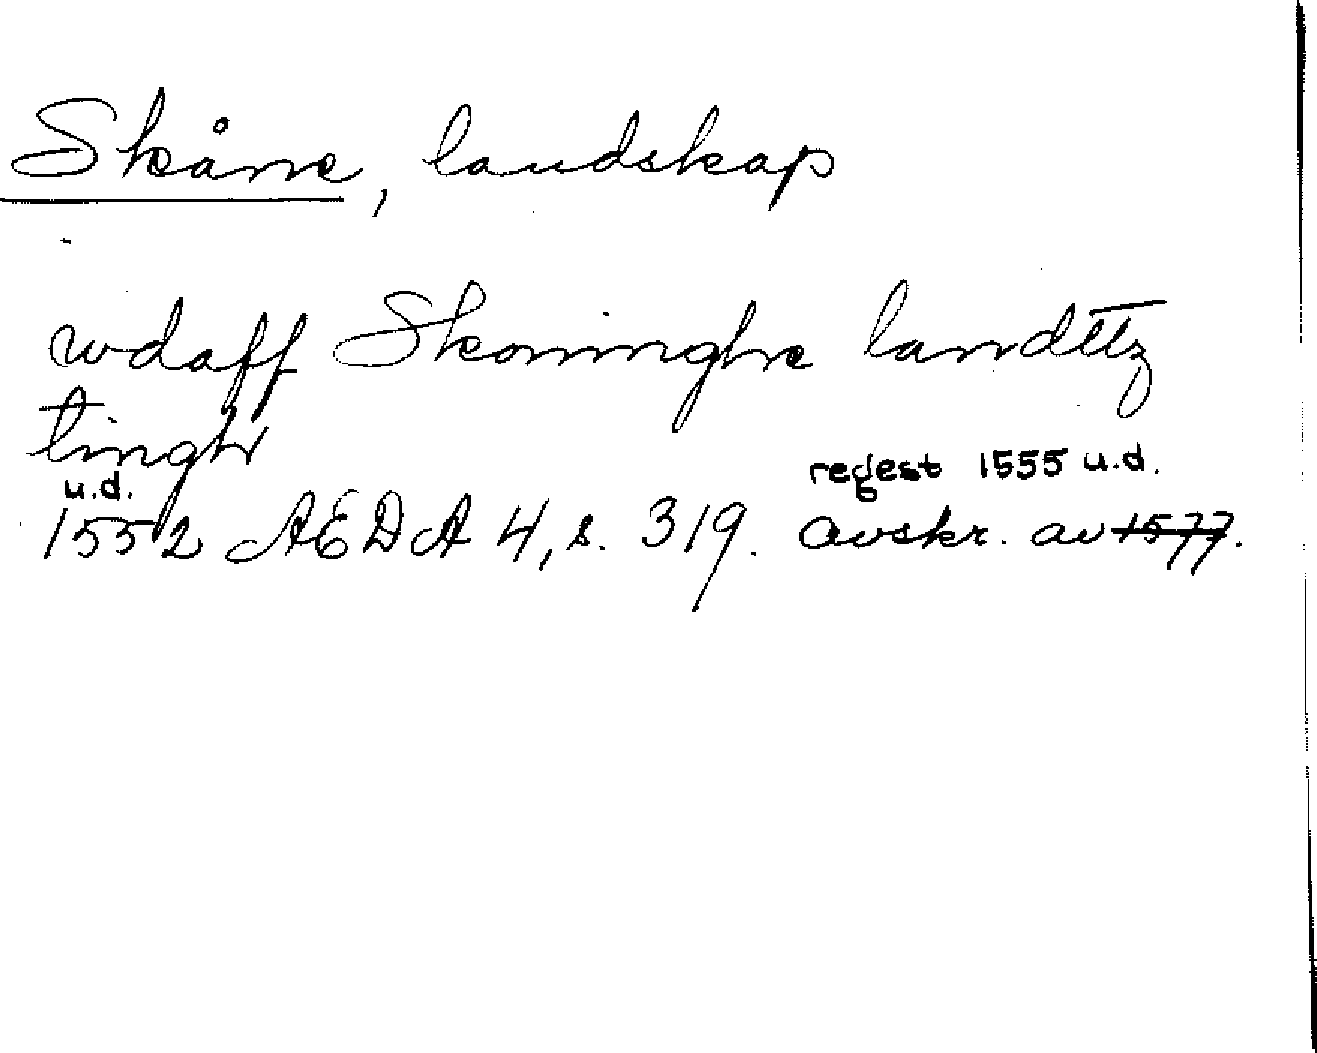 Skåne, landskap
wdaff Skoninghe landttz
tingh
u.d.
regest 1555 u.d.
1552 AEDA 4, s. 319. avskr. av 1577.